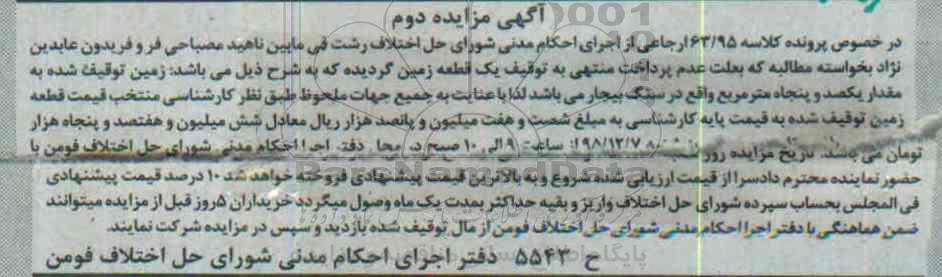 آگهی مزایده دوم
در خصوص پرونده کلاسه ۶۳/۹۵ ارجاعی از اجرای احکام مدنی شورای حل اختلاف رشت فی مابین ناهید مصباحی فر و فریدون عابدین
نژاد بخواسته مطالبه که بعلت عدم پرداخت منتهی به توقیف یک قطعه زمین گردیده که به شرح ذیل می باشد: زمین توقیف شده به
مقدار یکصد و پنجاه مترمربع واقع در سبتگ بیجار می باشد لذا با عنایت به جمیع جهات ملحوظ طبق نظر کارشناسی منتخب قیمت قطعه
زمین توقیف شده به قیمت پایه کارشناسی به مبلغ شصت و هفت میلیون و پانصد هزار ریال معادل شش میلیون و هفتصد و پنجاه هزار
تومان می باشد. تاریخ مزایده روز ۹۸/۱۲/۷ از ساعت ۹ الی ۱۰ صبح در محل دفتر اجرا احکام مدنی شورای حل اختلاف فومن با
حضور نماینده محترم دادسرا از قیمت ارزیابی شده شروع و به بالاترین قیمت پیشنهادی فروخته خواهد شد ۱۰ درصد قیمت پیشنهادی
فی المجلس بحساب سپرده شورای حل اختلاف واریز و بقیه حداکثر بمدت یک ماه وصول میگردد خریداران ۵روز قبل از مزایده میتوانند
ضمن هماهنگی با دفتر اجرا احکام مدنی شورای حل اختلاف فومن از مال توقیف شده بازدید و سپس در مزایده شرکت نمایند.
ح ۵۵۴۳ دفتر اجرای احکام مدنی شورای حل اختلاف فومن